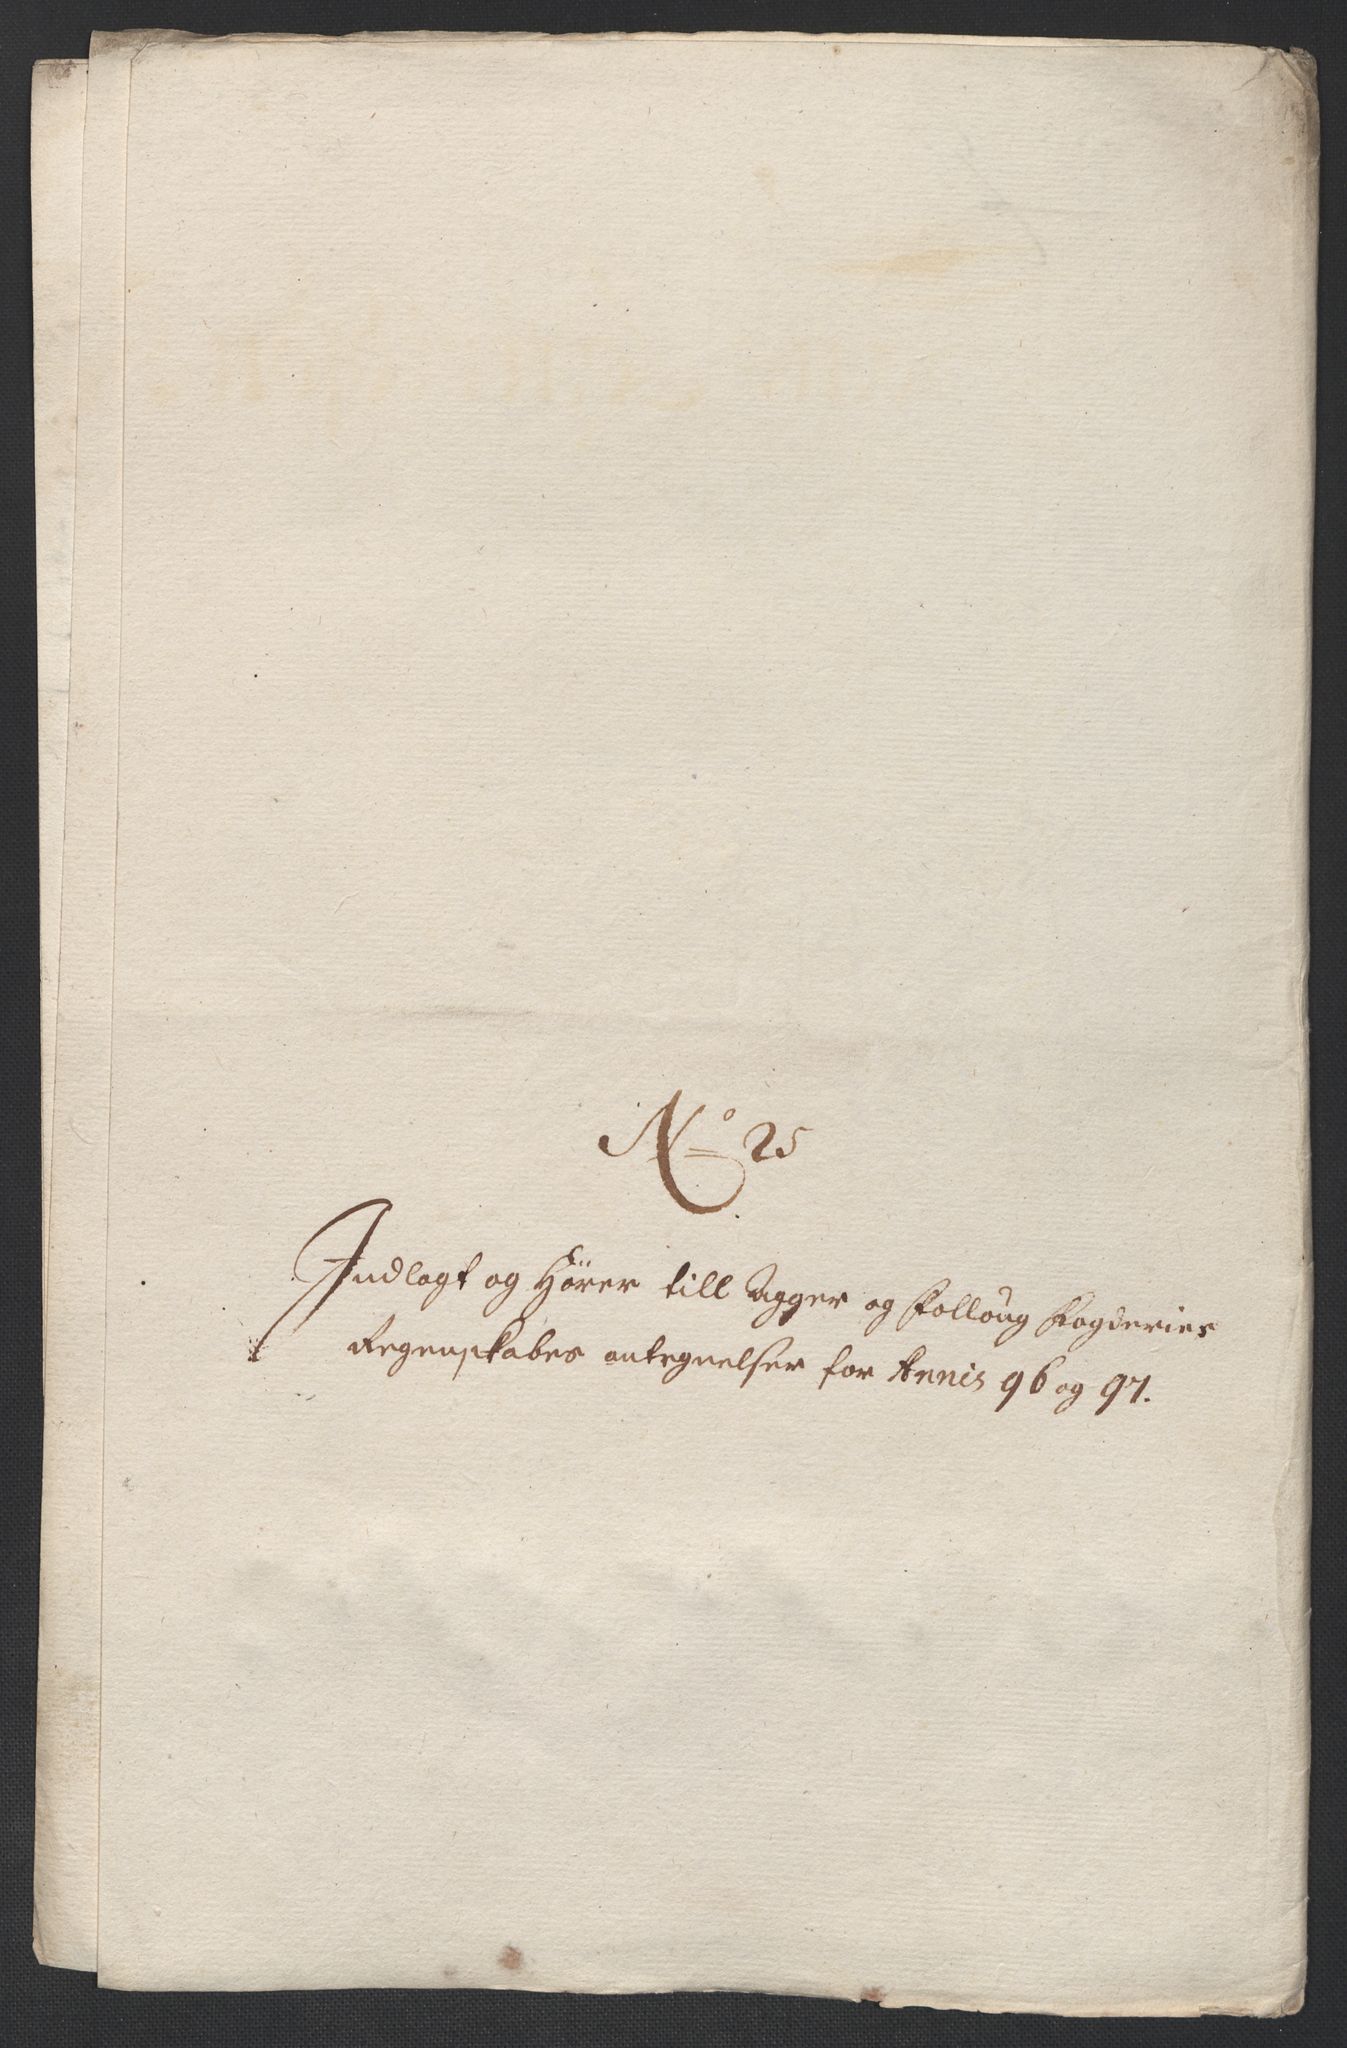 No 25
Indlagt og Hörer till Agger og Folloug fogderies
Regenskabes antegnelser for Annis 96 og 97.